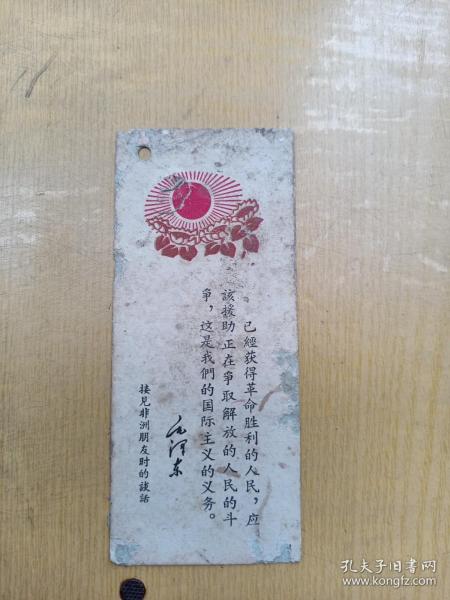 已經获得革命胜利的人民，应
該援助正在爭取解放的人民的斗
爭，这是我們的国际主义的义务。
毛泽东
接見非洲朋友时的談話
孔夫子旧书网
www.kongfz.com